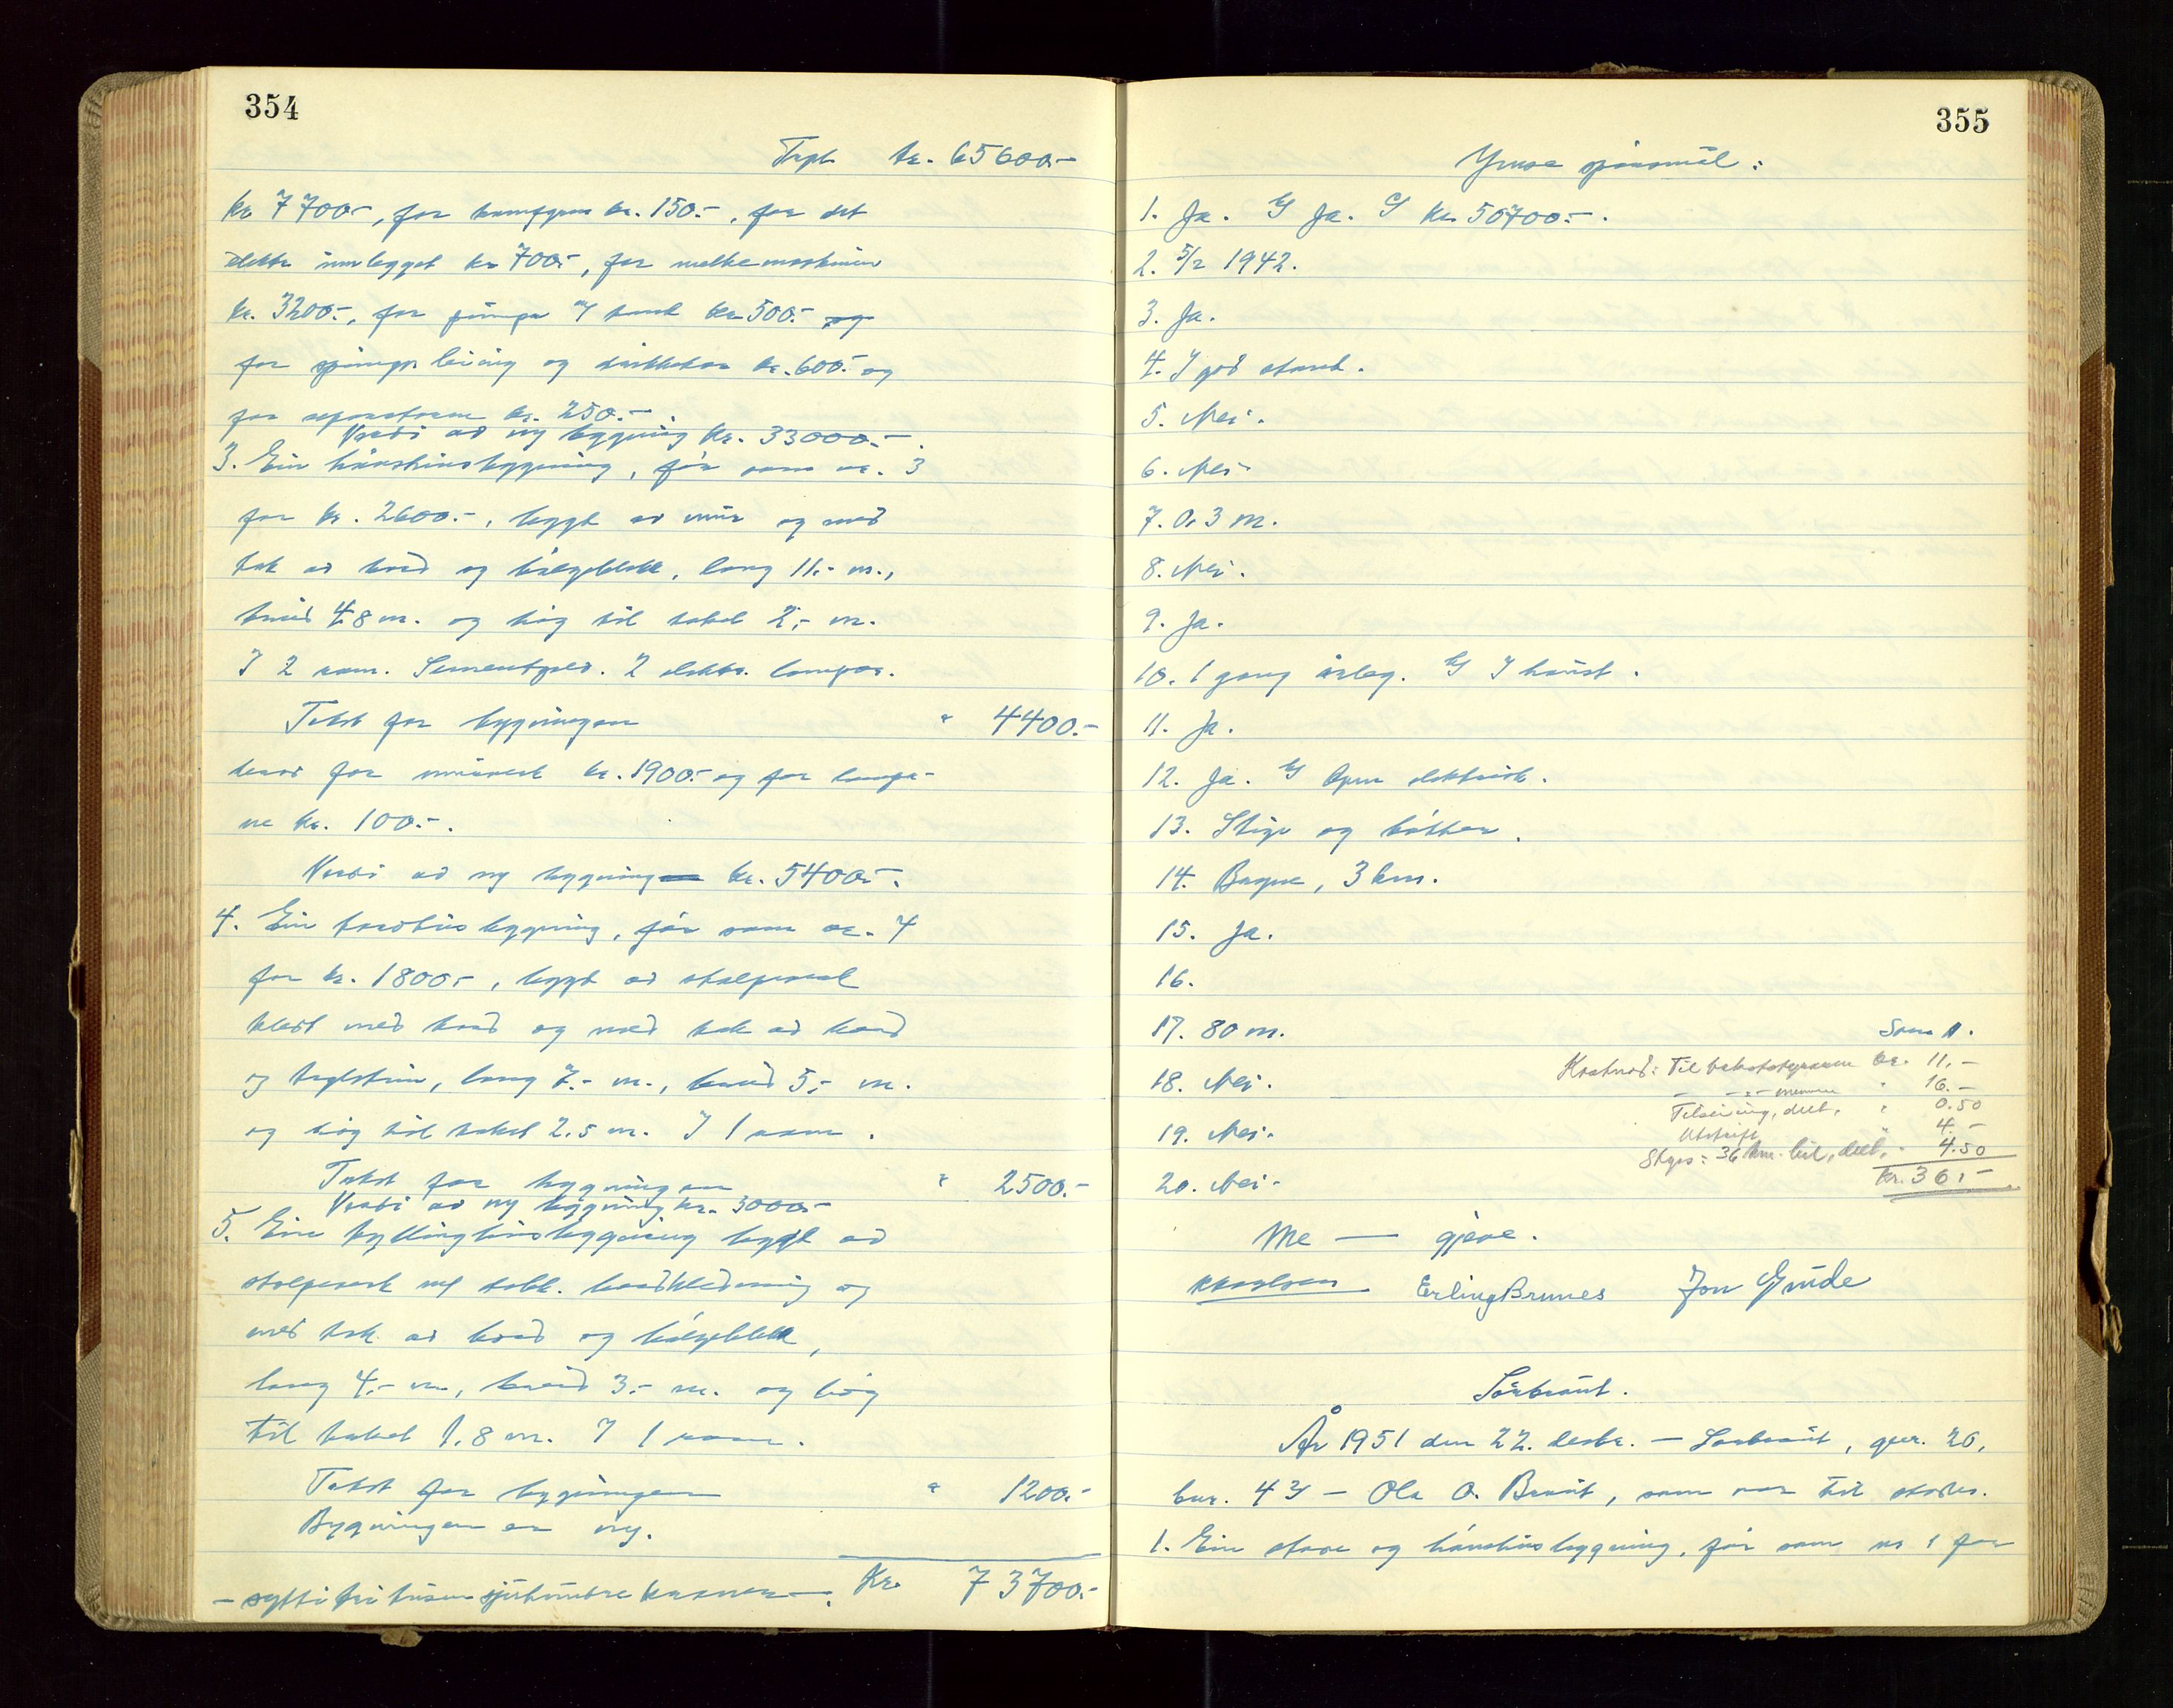 354
kr. 65600.-
kr 7700.-, for kr. 150.-, for det
elektr innlegget kr 700.-, for melkemaskinen
kr. 3200.-, for pumpe og tank kr 500.- og
for og drikkekar kr. 600.- og
for separatoren kr. 250.-.
Verdi av ny bygning kr. 33000.-.
3. Ein hönsehusbygning, för som nr. 3
for kr. 2600.-, bygt av mur og med
tak av bord og bölgeblekk, lang 11.- m.,
breid 4.8 m. og høg til taket 2,- m.
I 2 rom. Sementgolv. 2 elektr. lampor.
Takst for bygningen " 4400.-
derav for murverk kr. 1900.- og for lampo-
ne kr. 100.-.
Verdi av ny bygning kr. 5400.-.
4. Ein bygning, för som nr. 4
for kr. 1800.-, bygt av stolpeverk
kledt med bord og med tak av bord
og teglstein, lang 7.- m., breid 5,- m.
og høg til taket 2.5 m. I 1 rom.
Takst for bygningen " 2500.-
Verdi av ny bygning kr. 3000.-
5. Ein kyllinghusbygning bygt av
stolpeverk m/ dobb. bordkledning og
med tak av bord og bölgeblekk,
lang 4,- m, breid 3,- m. og høg
til taket 1.8 m. I 1 rom.
Takst for bygningen " 1200.-
Bygningen er ny.
- sytti tri tusen sjuhundre kroner -. Kr. 73700.-
355
Ymse spörsmål:
1. Ja. Ja. Kr. 50700.-.
2. 5/2 1942.
3. Ja.
4. I god stand.
5. Nei.
6. Nei.
7. 0.3 m.
8. Nei.
9. Ja.
10. 1 gang årleg. I haust.
11. Ja.
12. Ja. Open elektrisk.
13. Stige og bötter.
14. Bagn, 3 km.
15. Ja.
16.
17. 80 m. Som A.
Kostnad: Til takststyraren kr. 11.-
-"- mennene " 16.-
Tilseiing, delt, " 0.50
18. Nei.
Utskrift " 4.-
19. Nei.
Skyss: 36 km. bil, delt, " 4.50
20. Nei. Kr. 36,-
Me — gjeve.
Erling Brunes Jon Grude
Sörbraut.
År 1951 den 22. desbr. - Sörbraut, gnr. 20,
bnr. 43 - Ola O. Braut, som var til stades.
1. Ein stove og hönehusbygning, för som nr 1 for